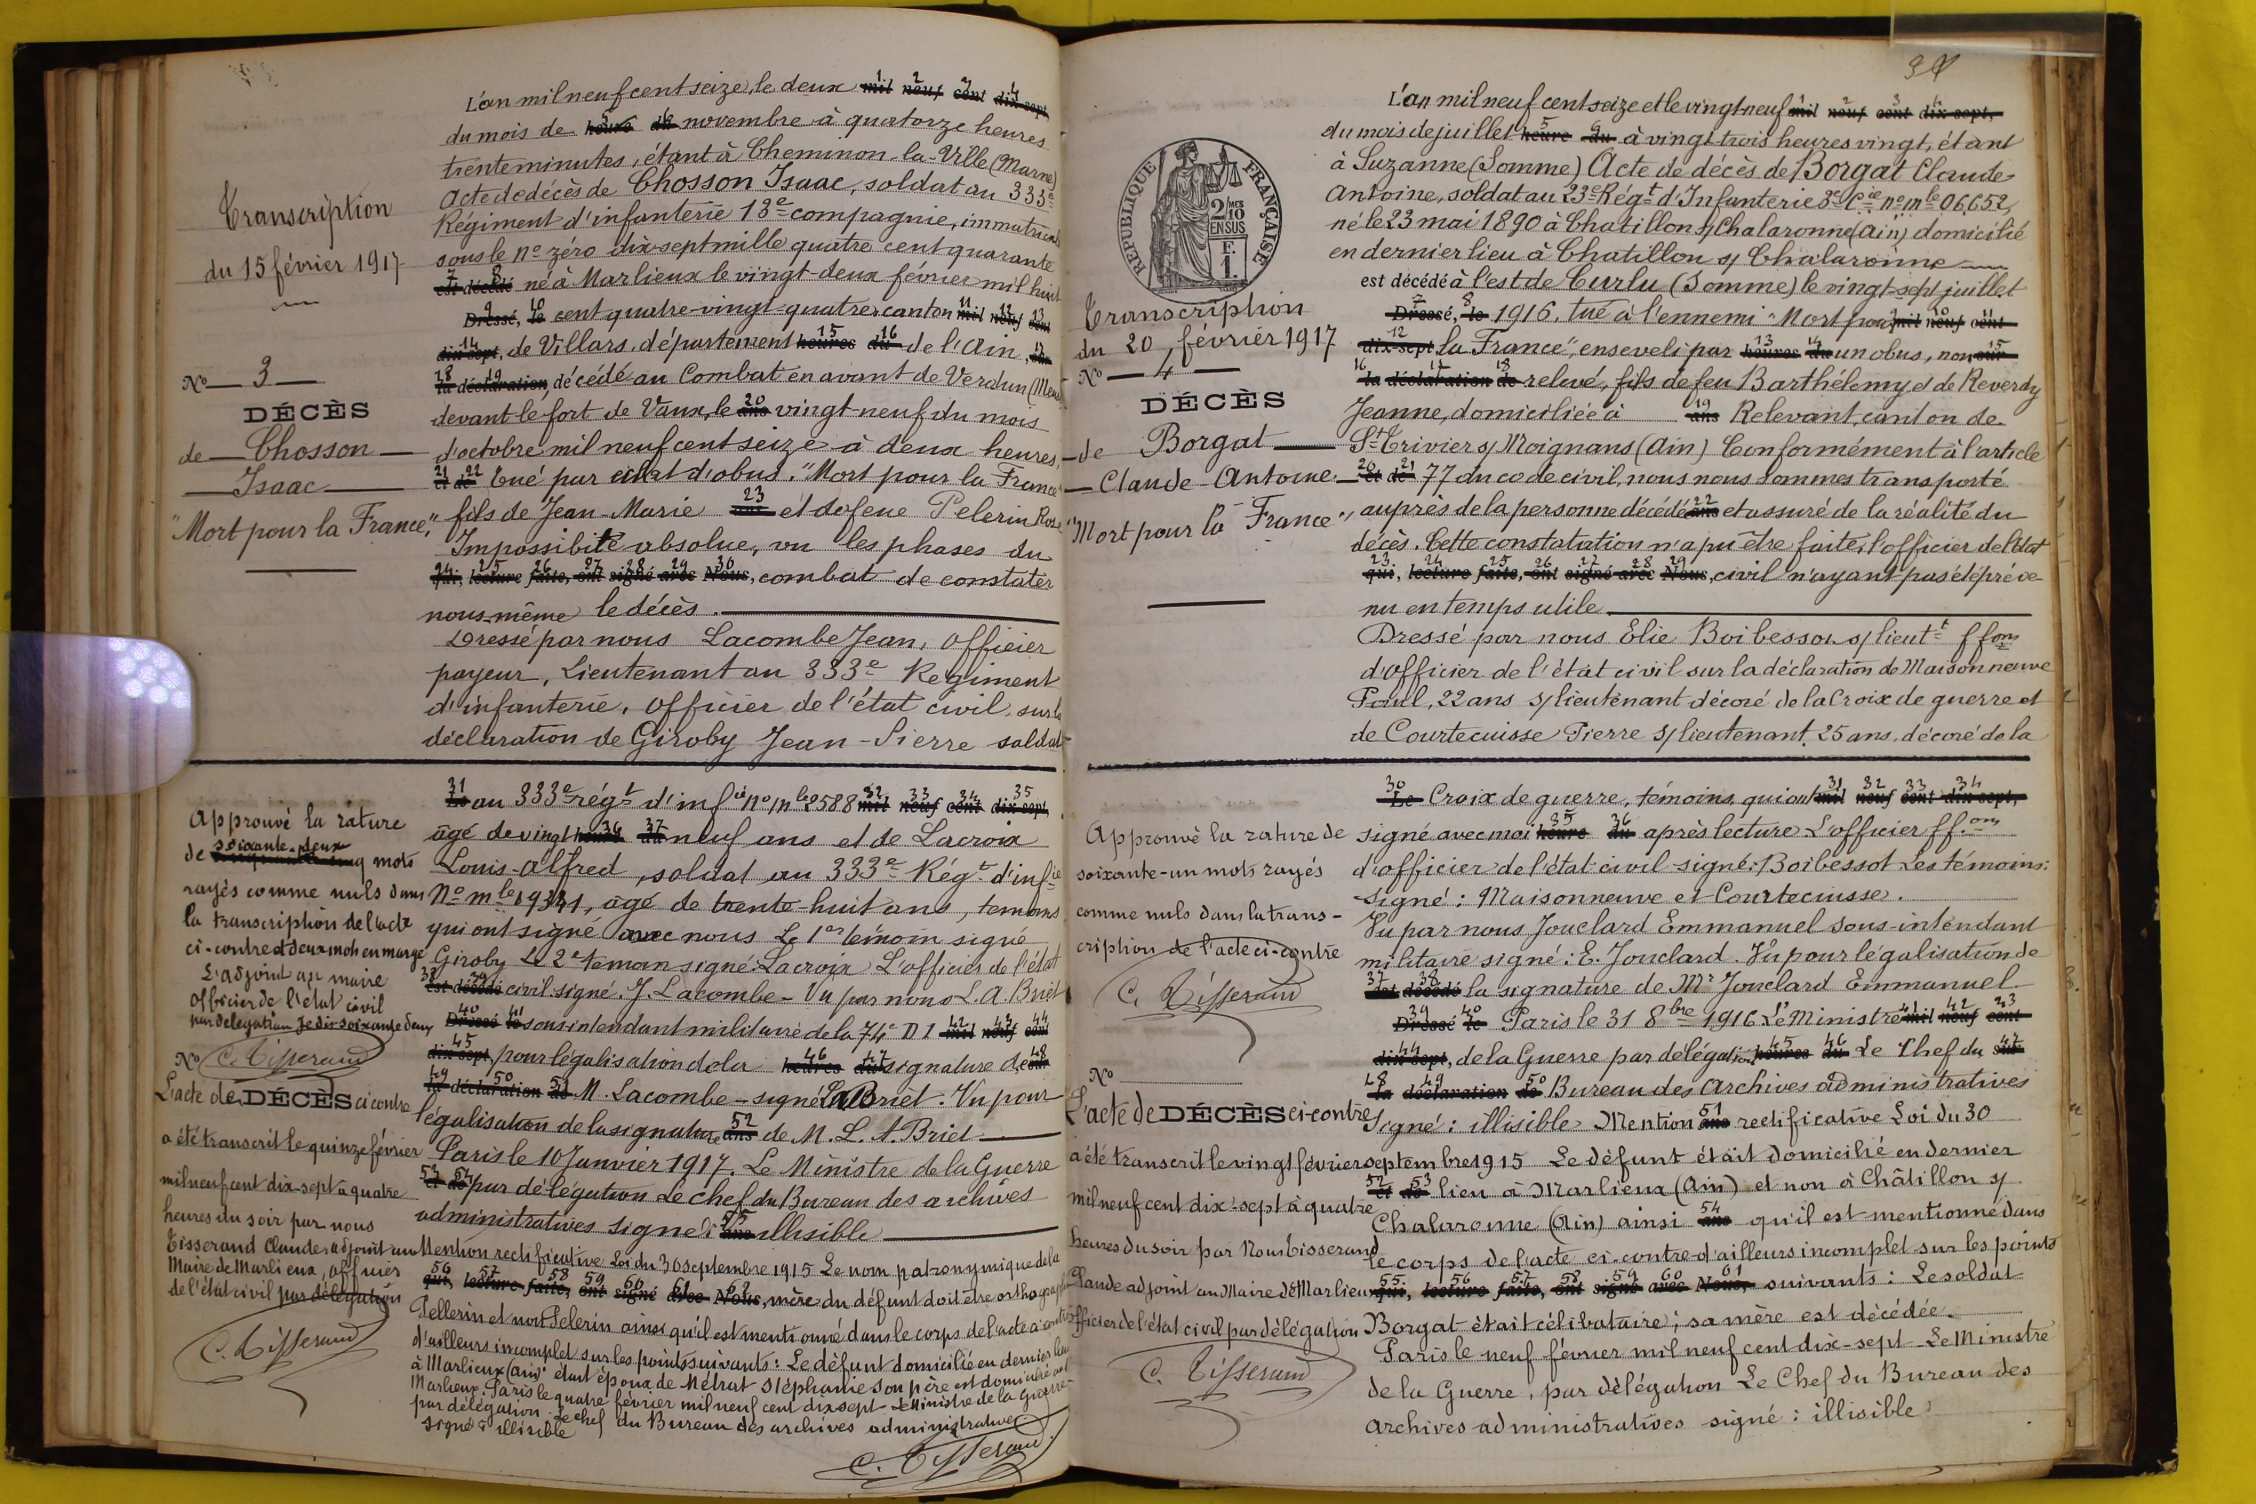 Transcription
du 15 février 1917
No 3
DÉCÈS
de Chosson
Isaac
"Mort pour la France"
L'an mil neuf cent seize, le deux mil neuf cent dix-sept,
du mois de heure du novembre à quatorze heures
trente minutes, étant à Cheminon-la-Ville (Marne)
Acte de décès de Chosson Isaac, soldat au 333e
Régiment d'infanterie 13e compagnie, immatriculé
sous le no zéro dix-sept mille quatre cent quarante
est décédé né à Marlieux le vingt-deux février mil huit
Dressé, le cent quatre-vingt-quatre, canton mil neuf cent
dix-sept, de Villars, département heures du de l'Ain, sur
la déclaration, décédé au Combat en avant de Verdun (Meuse)
devant le fort de Vaux, le ans vingt-neuf du mois
d'octobre mil neuf cent seize à deux heures,
et de Tué par éclat d'obus. "Mort pour la France"
fils de Jean-Marie ans et de feue Pelerin Rose
Impossibilité absolue, vu les phases du
qui, lecture faite, ont signé avec Nous, combat de constater
nous-même le décès.
Dressé par nous Lacombe Jean, Officier
payeur, Lieutenant au 333e Régiment
d'infanterie, Officier de l'état civil, sur la
déclaration de Giroby Jean-Pierre soldat
Le au 333e régt d'infie No mle 2588 mil neuf cent dix-sept,
âgé de vingt heure du neuf ans et de Lacroix
Louis-Alfred, soldat au 333e Régt d'infie
No mle 19341, âgé de trente-huit ans, témoins
qui ont signé avec nous Le 1er témoin signé
Giroby Le 2e témoin signé: Lacroix L'officier de l'état
est décédé civil signé. J. Lacombe - Vu par nous L. A. Briet
Dressé le sous intendant militaire de la 74e D I mil neuf cent
dix-sept, pour légalisation de la heures du signature de, sur
la déclaration de M. Lacombe - signé L A Briet. Vu pour
légalisation de la signature ans de M. L. A. Briet
Paris le 10 Janvier 1917. Le Ministre de la Guerre
et de par délégation Le chef du Bureau des archives
administratives signé: ans illisible
Mention rectificative Loi du 30 septembre 1915 Le nom patronymique de la
qui, lecture faite, ont signé avec Nous, mère du défunt doit être orthographié
Pellerin et non Pelerin ainsi qu'il est mentionné dans le corps de l'acte ci-contre
d'ailleurs incomplet sur les points suivants: Le défunt domicilié en dernier lieu
à Marlieux (Ain) était époux de Métrat Stéphanie son père est domicilié au
Marlieux. Paris le quatre février mil neuf cent dix sept - Le Ministre de la Guerre
par délégation Le chef du Bureau des archives administratives
signé: illisible
C. Tisserand
Approuvé la rature
de soixante-deux mots
rayés comme nuls dans
la transcription de l'acte
ci-contre et deux mots en marge
L'adjoint au maire
officier de l'état civil
par délégation Je dis soixante deux
No C. Tisserand
L'acte de DÉCÈS ci contre
a été transcrit le quinze février
mil neuf cent dix-sept à quatre
heures du soir par nous
Tisserand Claude adjoint au
Maire de Marlieux, officier
de l'état civil par délégation
C. Tisserand
Transcription
du 20 février 1917
No 4
DÉCÈS
de Borgat
Claude-Antoine
"Mort pour la France"
RÉPUBLIQUE FRANÇAISE
2/10 MES
EN SUS
F
1.
L'an mil neuf cent seize et le vingt-neuf mil neuf cent dix-sept,
du mois de juillet heure du à vingt-trois heures vingt, étant
à Suzanne (Somme) Acte de décès de Borgat Claude
Antoine, soldat au 23e Régt d'Infanterie 8e Cie no mle 06652,
né le 23 mai 1890 à Chatillon s/ Chalaronne (Ain) domicilié
en dernier lieu à Chatillon s/ Chalaronne
est décédé à l'est de Curlu (Somme) le vingt-sept juillet
Dressé, le 1916. tué à l'ennemi "Mort pour mil neuf cent
dix-sept la France", enseveli par heures du un obus, non sur
la déclaration de relevé, fils de feu Barthélemy et de Reverdy
Jeanne, domiciliée à ans Relevant, canton de
St Trivier s/ Moignans (Ain) Conformément à l'article
et de 77 du code civil, nous nous sommes transporté
auprès de la personne décédée ans et assuré de la réalité du
décès. Cette constatation n'a pu être faite, l'officier de l'état
qui, lecture faite, ont signé avec Nous, civil n'ayant pas été préve-
nu en temps utile
Dressé par nous Elie Boibessot s/lieutt ffons
d'officier de l'état civil sur la déclaration de Maisonneuve
Paul, 22 ans s/lieutenant décoré de la Croix de guerre et
de Courtecuisse Pierre s/lieutenant, 25 ans, décoré de la
Le Croix de guerre, témoins, qui ont mil neuf cent dix-sept,
signé avec moi heure du après lecture L'officier ff.ons
d'officier de l'état civil signé: Boibessot Les témoins:
signé: Maisonneuve et Courtecuisse.
Vu par nous Jouclard Emmanuel sous-intendant
militaire signé: E. Jouclard. Vu pour légalisation de
est décédé la signature de Mr Jouclard Emmanuel.
Dressé le Paris le 31 8bre 1916 Le Ministre mil neuf cent
dix-sept, de la Guerre par délégation heures du Le Chef du sur
la déclaration de Bureau des Archives administratives
signé: illisible Mention ans rectificative Loi du 30
septembre 1915 Le défunt était domicilié en dernier
et de lieu à Marlieux (Ain) et non à Châtillon s/
Chalaronne (Ain) ainsi ans qu'il est mentionné dans
le corps de l'acte ci-contre d'ailleurs incomplet sur les points
qui, lecture faite, ont signé avec Nous, suivants: Le soldat
Borgat était célibataire; sa mère est décédée.
Paris le neuf février mil neuf cent dix-sept - Le Ministre
de la Guerre, par délégation Le Chef du Bureau des
Archives administratives signé: illisible
Approuvé la rature de
soixante-un mots rayés
comme nuls dans la trans-
cription de l'acte ci-contre
C. Tisserand
No
L'acte de DÉCÈS ci-contre
a été transcrit le vingt février
mil neuf cent dix-sept à quatre
heures du soir par Nous Tisserand
Claude adjoint au Maire de Marlieux
officier de l'état civil par délégation
C. Tisserand